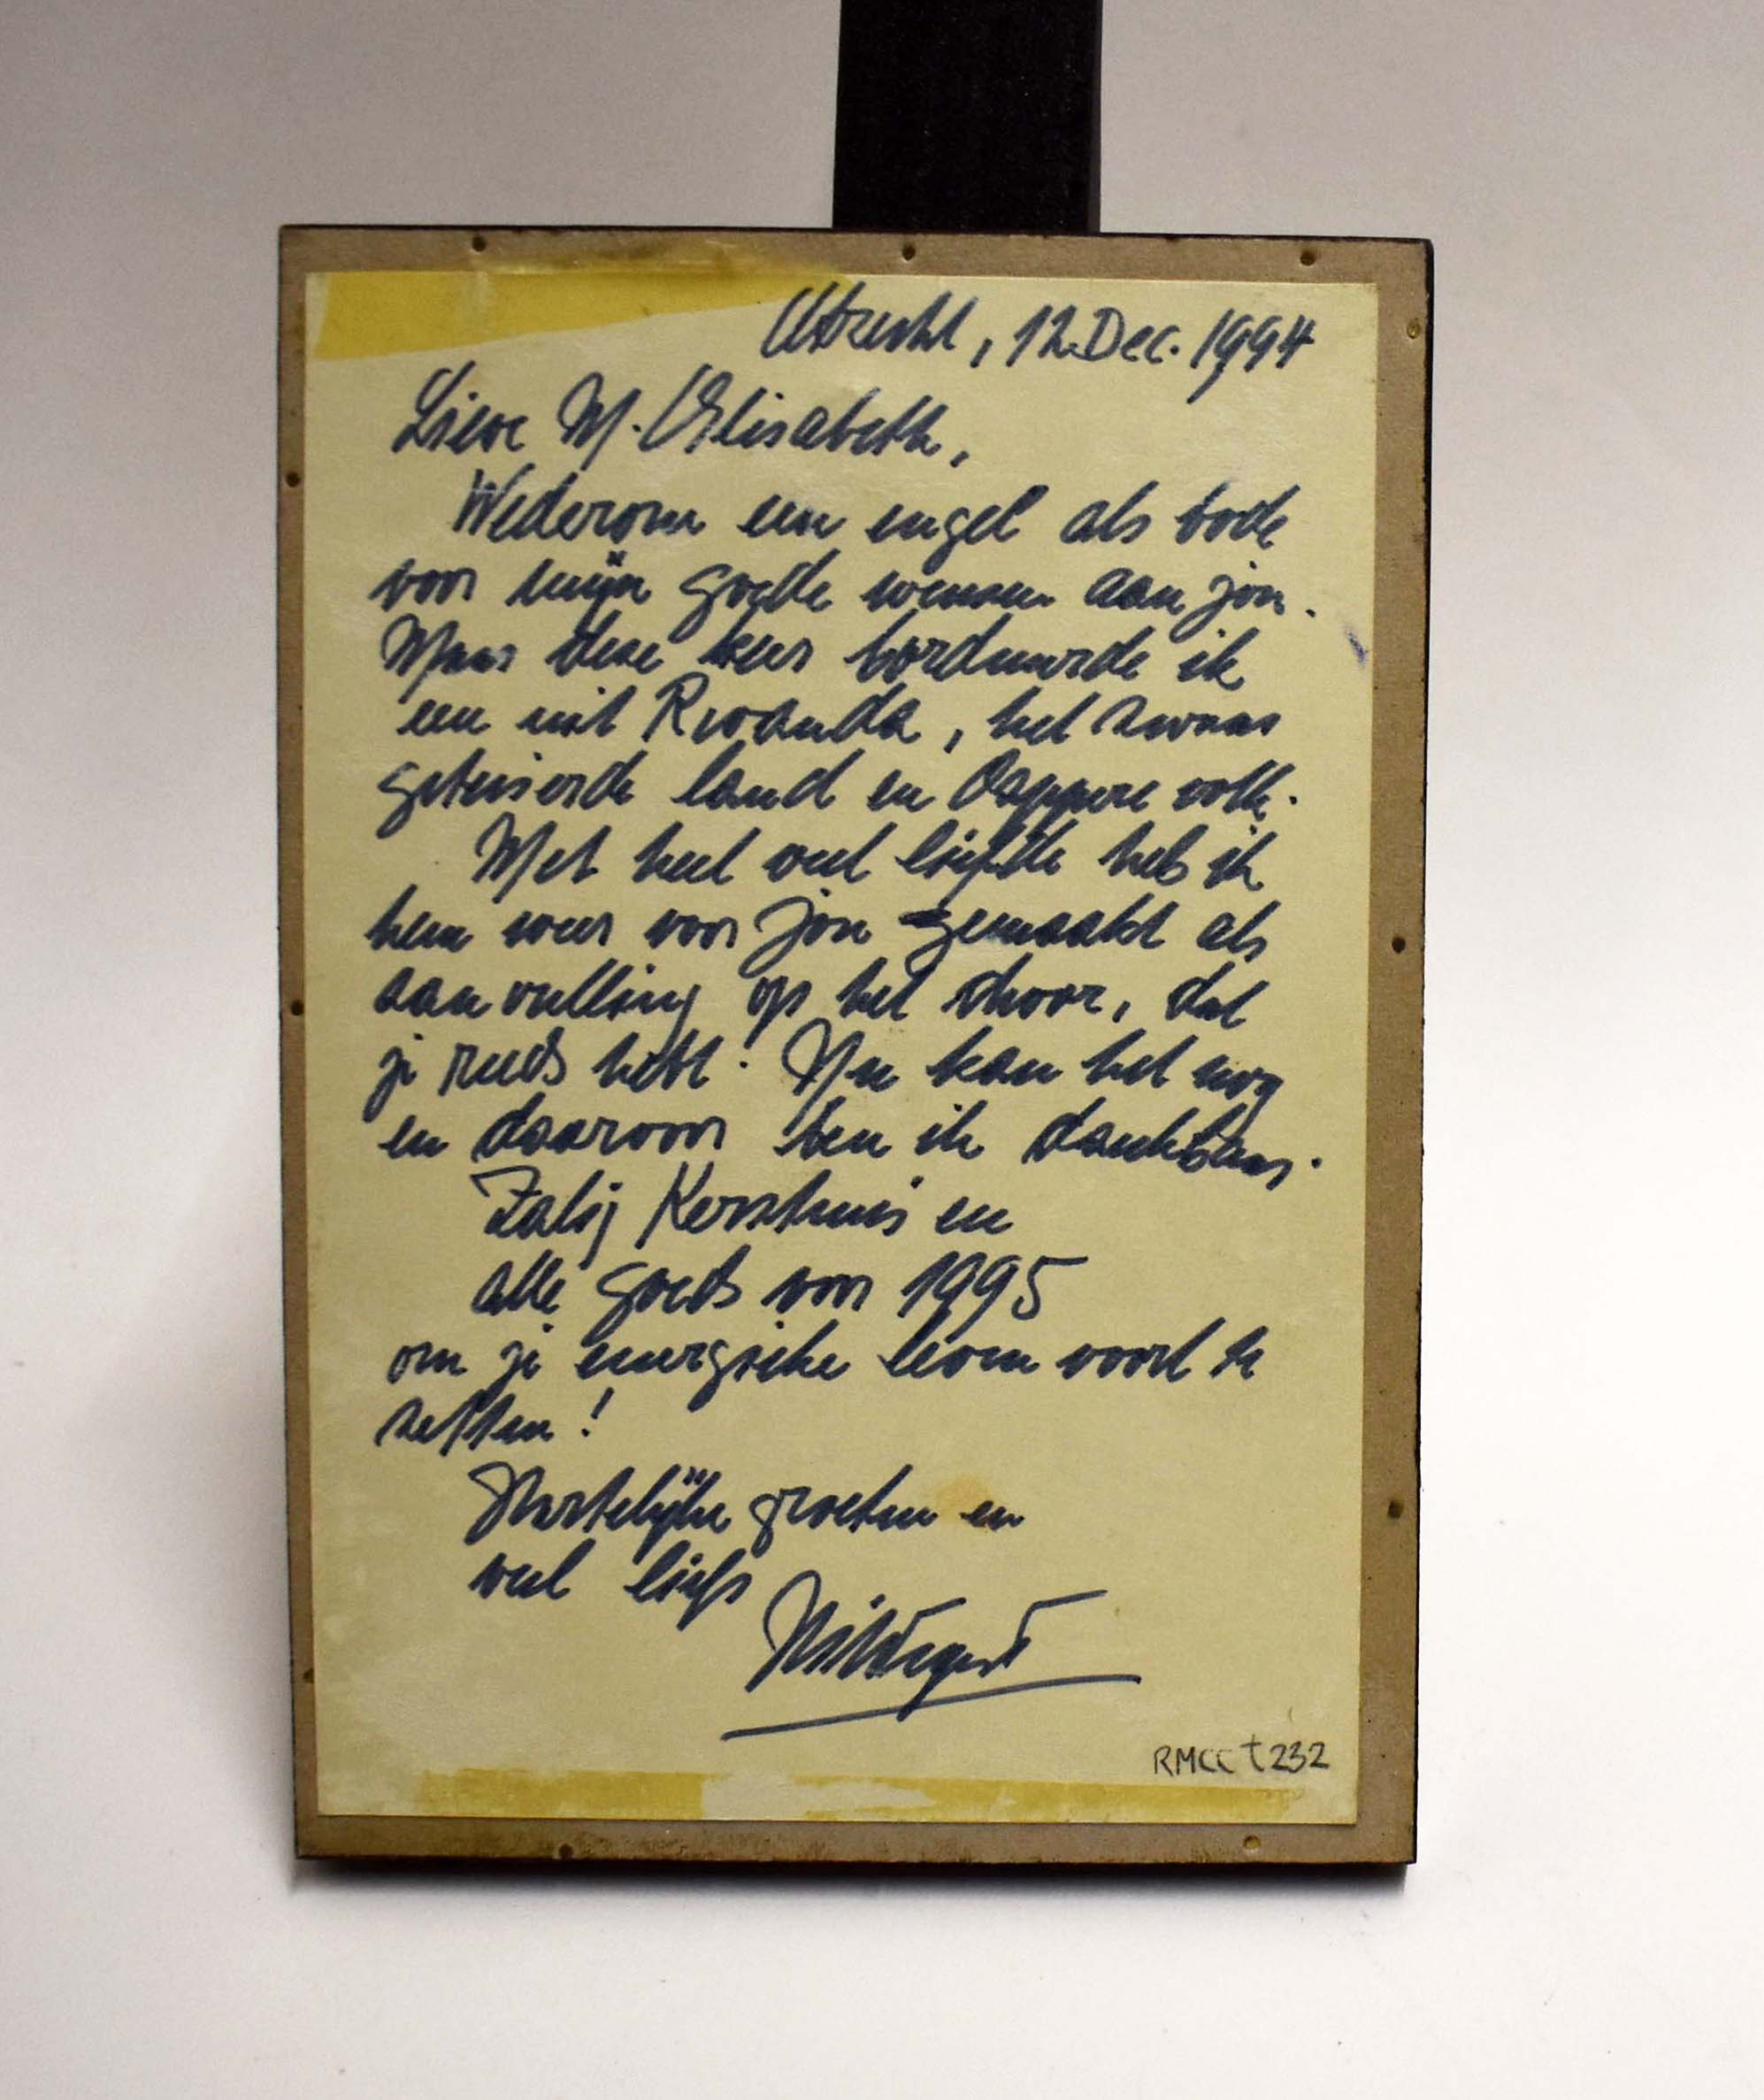 Utrecht, 12 Dec. 1994
Lieve M. Elisabeth,
Wederom een engel als bode
voor mijn goede wensen aan jou.
Maar deze keer borduurde ik
een uit Rwanda, het zwaar
geteisterde land en dappere volk.
Met heel veel liefde heb ik
hem weer voor jou gemaakt als
aanvulling op het choor, dat
je reeds hebt! Nu kan het nog
en daarvoor ben ik dankbaar.
Zalig Kerstmis en
alle goeds voor 1995
om je energieke leven voort te
zetten!
Hartelijke groeten en
veel liefs
Hildegard
RMCC t232